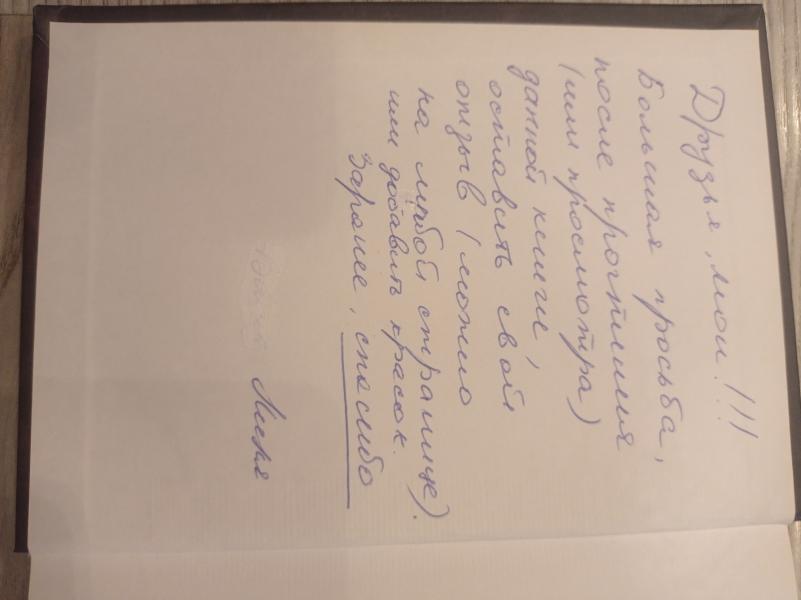 Друзья, мои!!!
Большая просьба,
после прочтения
(или просмотра)
данной книги,
оставить свой
отзыв (можно
на любой странице).
или добавить красок.
Заранее, спасибо